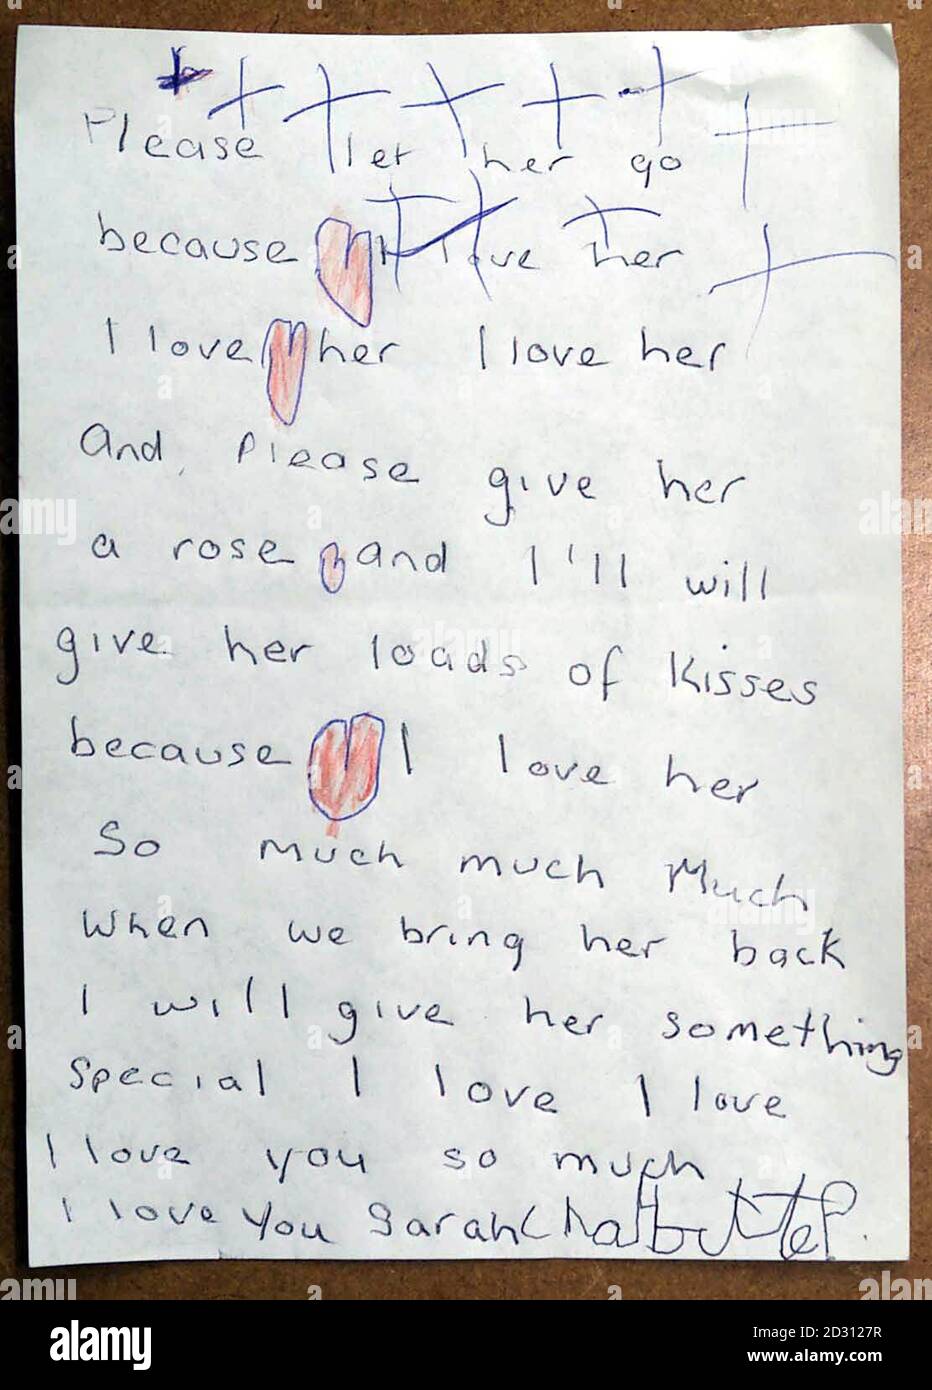 Please let her go
because I love her
I love her I love her
And, please give her
a rose and I'll will
give her loads of kisses
because I love her
So much much Much
when we bring her back
I will give her something
special I love I love
I love you so much
I love you Sarah
alamy
Image ID: 2D3127R
www.alamy.com